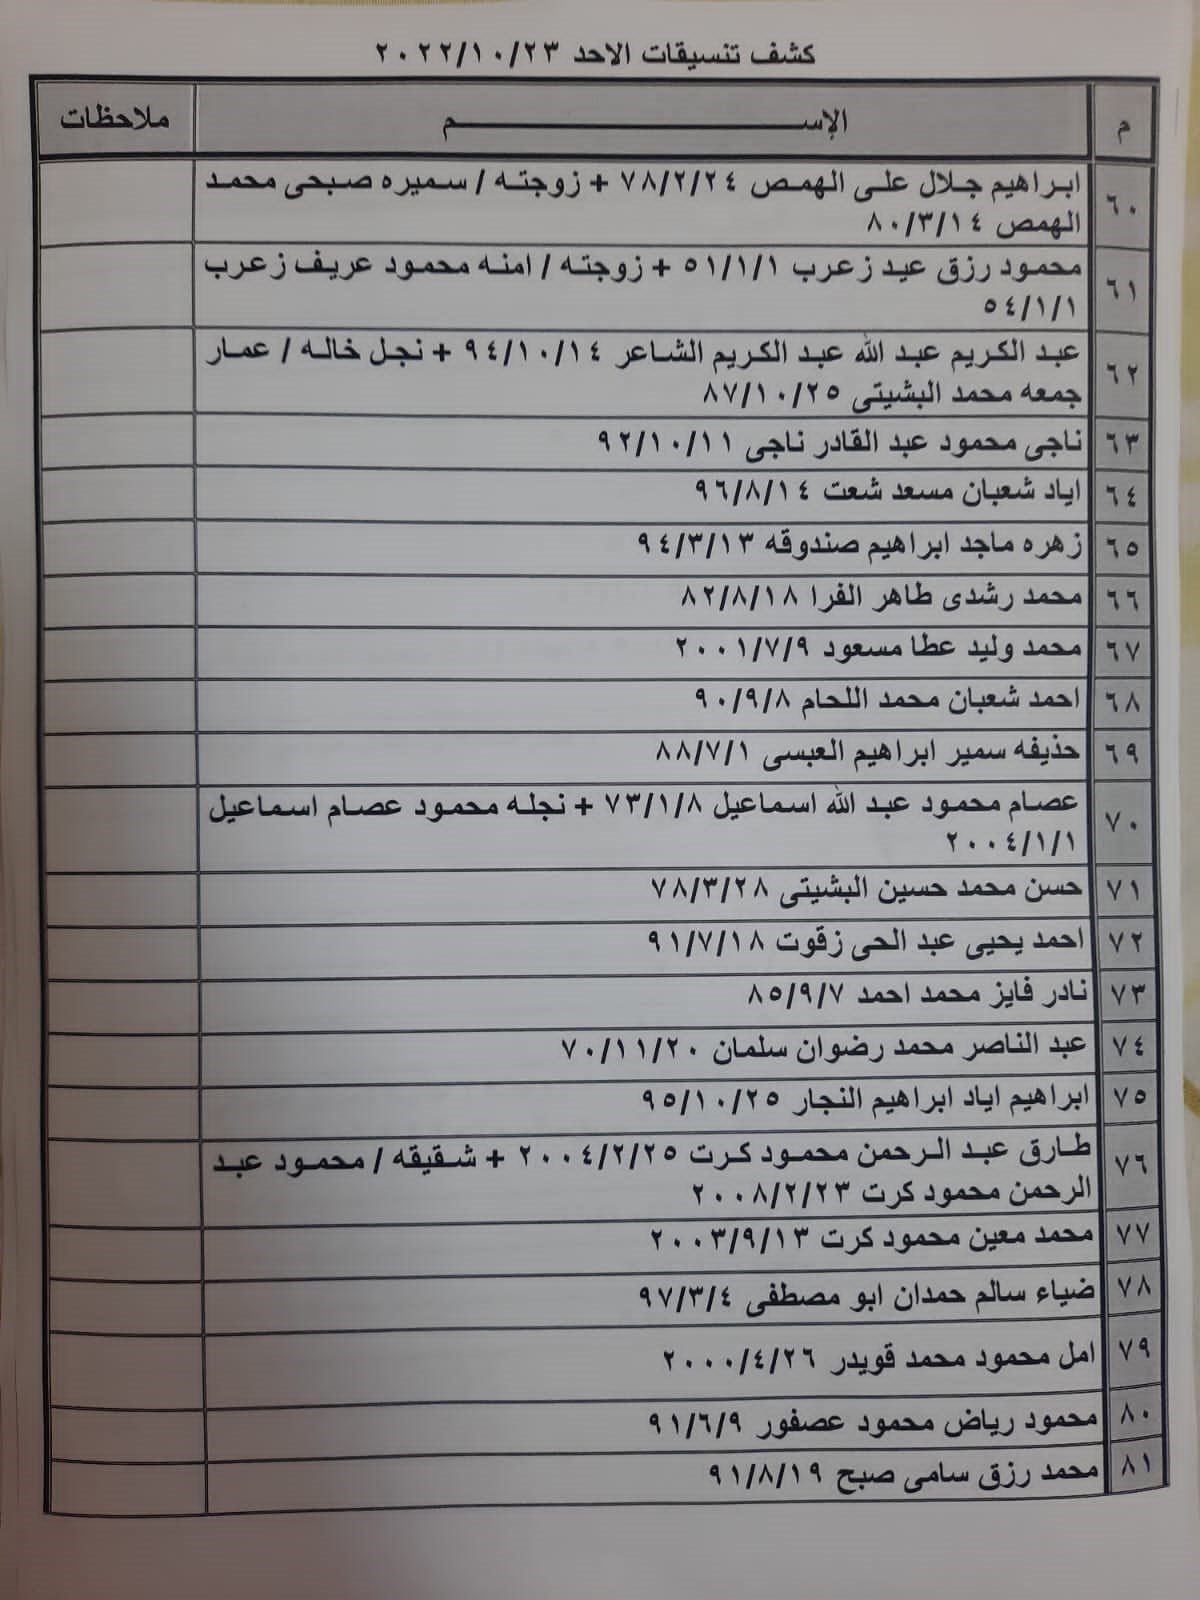 كشف تنسيقات الاحد ٢٠٢٢/١٠/٢٣
م الإســـــــــم ملاحظات
٦٠ ابراهيم جلال على الهمص ٧٨/٢/٢٤ + زوجته / سميره صبحى محمد
الهمص ٨٠/٣/١٤
٦١ محمود رزق عيد زعرب ٥١/١/١ + زوجته / امنه محمود عريف زعرب
٥٤/١/١
٦٢ عبد الكريم عبد الله عبد الكريم الشاعر ٩٤/١٠/١٤ + نجل خاله / عمار
جمعه محمد البشيتى ٨٧/١٠/٢٥
٦٣ ناجى محمود عبد القادر ناجى ٩٢/١٠/١١
٦٤ اياد شعبان مسعد شعت ٩٦/٨/١٤
٦٥ زهره ماجد ابراهيم صندوقه ٩٤/٣/١٣
٦٦ محمد رشدى طاهر الفرا ٨٢/٨/١٨
٦٧ محمد وليد عطا مسعود ٢٠٠١/٧/٩
٦٨ احمد شعبان محمد اللحام ٩٠/٩/٨
٦٩ حذيفه سمير ابراهيم العبسى ٨٨/٧/١
٧٠ عصام محمود عبد الله اسماعيل ٧٣/١/٨ + نجله محمود عصام اسماعيل
٢٠٠٤/١/١
٧١ حسن محمد حسين البشيتى ٧٨/٣/٢٨
٧٢ احمد يحيى عبد الحى زقوت ٩١/٧/١٨
٧٣ نادر فايز محمد احمد ٨٥/٩/٧
٧٤ عبد الناصر محمد رضوان سلمان ٧٠/١١/٢٠
٧٥ ابراهيم اياد ابراهيم النجار ٩٥/١٠/٢٥
٧٦ طارق عبد الرحمن محمود كرت ٢٠٠٤/٢/٢٥ + شقيقه / محمود عبد
الرحمن محمود كرت ٢٠٠٨/٢/٢٣
٧٧ محمد معين محمود كرت ٢٠٠٣/٩/١٣
٧٨ ضياء سالم حمدان ابو مصطفى ٩٧/٣/٤
٧٩ امل محمود محمد قويدر ٢٠٠٠/٤/٢٦
٨٠ محمود رياض محمود عصفور ٩١/٦/٩
٨١ محمد رزق سامى صبح ٩١/٨/١٩